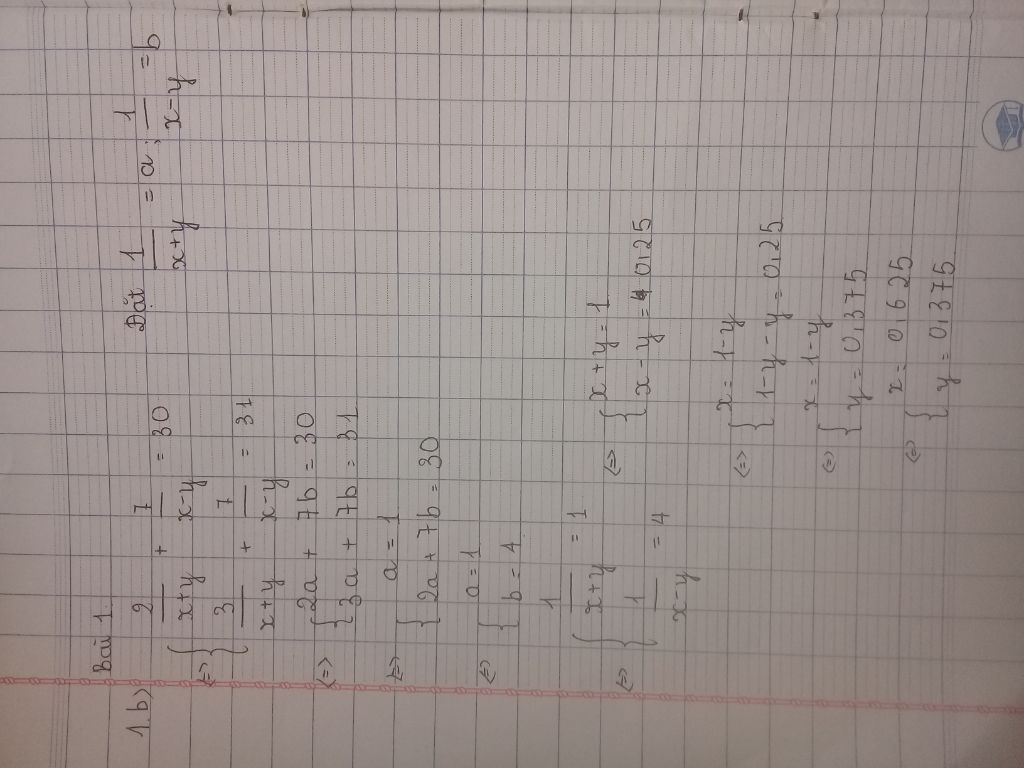 Bài 1.
1.b) { 2/(x+y) + 7/(x-y) = 30 Đặt 1/(x+y) = a ; 1/(x-y) = b
<=> { 3/(x+y) + 7/(x-y) = 31
<=> { 2a + 7b = 30
3a + 7b = 31
<=> { a = 1
2a + 7b = 30
<=> { a = 1
b = 4
<=> { 1/(x+y) = 1
1/(x-y) = 4
<=> { x+y = 1
x-y = 0,25
<=> { x = 1-y
1-y-y = 0,25
<=> { x = 1-y
y = 0,375
<=> { x = 0,625
y = 0,375